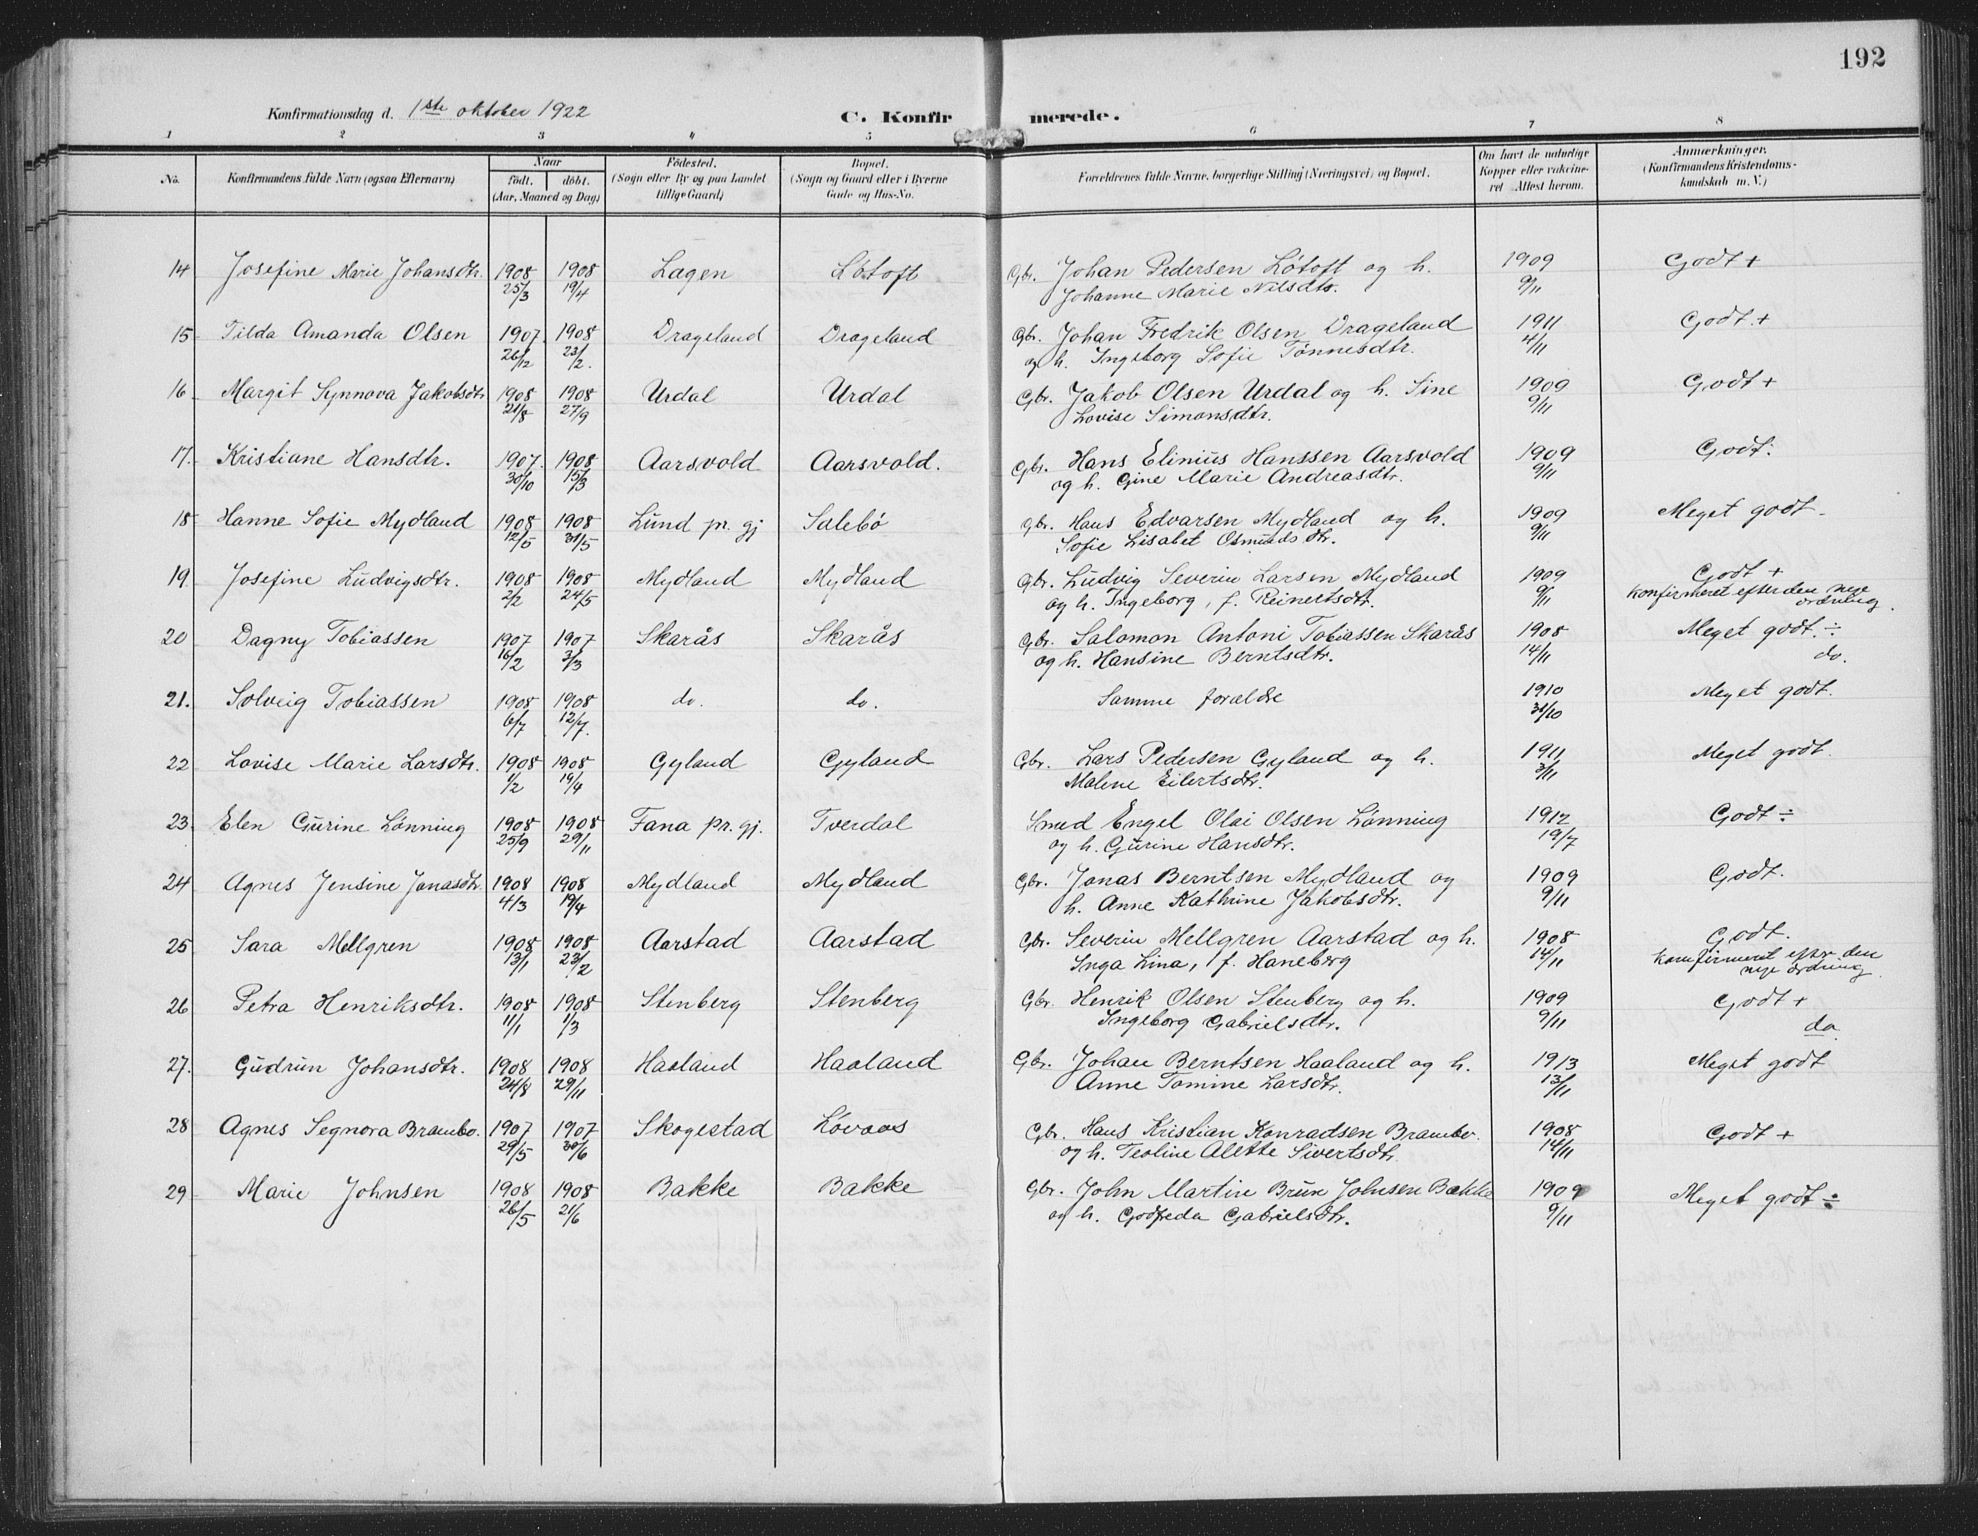 192
Konfirmationsdag d. 1ste oktober 1922
C. Konfirmerede.
1 2 3 4 5 6 7 8
No. | Konfirmandens fulde Navn (ogsaa Efternavn) | Naar födt. döbt. (Aar, Maaned og Dag) | Födested. (Sogn eller By og paa Landet tillige Gaard) | Bopæl. (Sogn og Gaard eller i Byerne Gade og Hus-No. | Forældrenes fulde Navne, borgerlige Stilling (Næringsvei) og Bopæl. | Om havt de naturlige Kopper eller vakcineret. Attest herom. | Anmærkninger. (Konfirmandens Kristendomskundskab m. V.)
14 Josefine Marie Johansdtr. 1908 1908 Lagen Lötoft Gbr. Johan Pedersen Lötoft og h. 1909 Godt +
25/3 19/4 Johanne Marie Nilsdtr. 9/11
15 Tilda Amanda Olsen 1907 1908 Drageland Drageland Gbr. Johan Fredrik Olsen Drageland 1911 Godt +
26/12 23/2. og h. Ingeborg Sofie Tönnesdtr. 4/11
16 Margit Synnova Jakobsdtr 1908 1908 Urdal Urdal Gbr. Jakob Olsen Urdal og h. Sine 1909 Godt +
21/8 27/9 Lovise Simonsdtr. 9/11
17. Kristiane Hansdtr. 1907 1908 Aarsvold Aarsvold. Gbr. Hans Elinius Hanssen Aarsvold 1909 Godt.
30/10 15/3 og h. Gine Marie Andreasdtr. 9/11
18 Hanne Sofie Mydland 1908 1908 Lund pr. gj Salebö Gbr. Hans Edvarsen Mydland og h. 1909 Meget godt.
12/5 31/5 Sofie Lisabet Osmunds dtr. 9/11
19 Josefine Ludvigsdtr. 1908 1908 Mydland Mydland Gbr. Ludvig Severin Larsen Mydland 1909 Godt +
2/2 24/5 og h. Ingeborg, f. Reinertsdtr. 9/11 konfirmeret efter den nye ordning.
20 Dagny Tobiassen 1907 1907 Skarås Skarås Gbr. Salomon Antoni Tobiassen Skarås 1908 Meget godt. ÷
16/2 3/3 og h. Hansine Berntsdtr. 14/11 do.
21. Solveig Tobiassen 1908 1908 do. do. Samme forældre 1910 Meget godt.
6/7 12/7. 31/10
22 Lovise Marie Larsdtr. 1908 1908 Gyland Gyland Gbr. Lars Pedersen Gyland og h. 1911 Meget godt.
1/2 19/4 Malene Eilertsdtr. 3/11
23. Elen Gurine Lönning 1908 1908 Fana pr. gj. Tverdal Smed Engel Olai Olsen Lönning 1912 Godt ÷
25/9 29/11 og h. Gurine Hansdtr. 19/7
24 Agnes Jensine Jonasdtr. 1908 1908 Mydland Mydland Gbr. Jonas Berntsen Mydland og 1909 Godt.
4/3 19/4 h. Anne Kathrine Jakobsdtr. 9/11
25 Sara Mellgren 1908 1908 Aarstad Aarstad Gbr. Severin Mellgren Aarstad og h. 1908 Godt.
13/1 23/2 Inga Lina, f. Haneberg 14/11 konfirmeret efter den nye ordning.
26 Petra Henriksdtr. 1908 1908 Stenberg Stenberg Gbr. Henrik Olsen Stenberg og h. 1909 Godt +
11/1 1/3 Ingeborg Gabrielsdtr. 9/11 do
27. Gudrun Johansdtr. 1908 1908 Haaland Haaland Gbr. Johan Berntsen Haaland og h. 1913 Meget godt
24/8 29/11 Anne Tomine Larsdtr. 13/11
28 Agnes Segnora Brambo. 1907 1907 Skogestad Lövaas Gbr. Hans Kristian Konradsen Brambo. 1908 Godt +
29/5 30/6 og h. Teoline Alette Sivertsdtr. 14/11
29 Marie Johnsen 1908 1908 Bakke Bakke Gbr. John Martin Brun Johnsen Bakke 1909 Meget godt ÷
26/5 21/6 og h. Godfreda Gabrielsdtr. 9/11